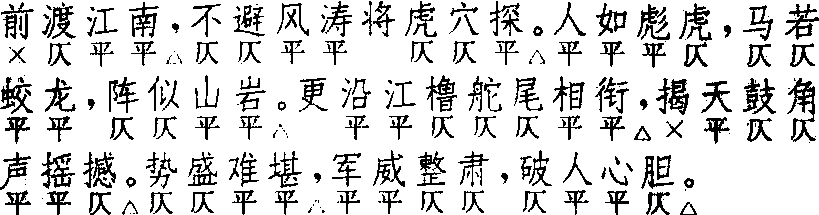 前渡江南，不避风涛将虎穴探。人如彪虎，马若
×仄平平△仄仄平平仄仄平△平平平仄仄仄
蛟龙，阵似山岩。更沿江橹舵尾相衔，揭天鼓角
平平仄仄平平△平平仄仄仄平平△×平仄仄
声摇撼。势盛难堪，军威整肃，破人心胆。
平平仄△仄仄平平△平平仄仄仄平平仄△